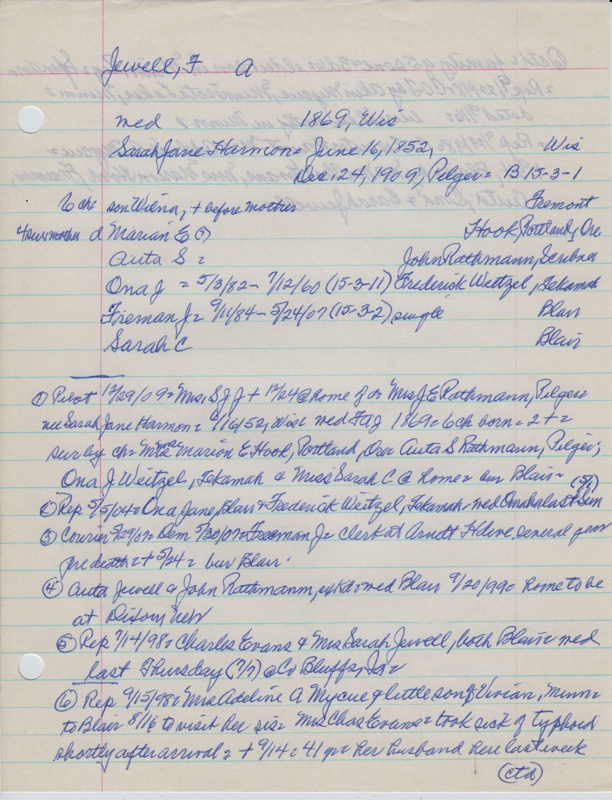 Jewell, F A
med 1869, Wis
Sarah Jane Harmon = June 16, 1852, Wis
Dec. 24, 1909, Pilger = B 15-3-1
6 ch = son Wilna, + before mother Fremont
4 surv mother d Marian E (?) Hook, Portland, Ore
Auta S = John Rathmann, Scribner
Ona J = 5/3/82 - 7/12/60 (15-3-11) Frederick Weitzel, Tekamah
Freman J = 9/11/84 - 5/24/07 (15-3-2) single Blair
Sarah C Blair
① Pilot 12/29/09 = Mrs. S J J + 12/24 @ home of dr Mrs J E Rathmann, Pilger =
nee Sarah Jane Harmon = 6/16/52, Wis = med F A J 1869 = 6 ch born = 2 + =
sur by ch = Mmes Marion E Hook, Portland, Ore = Auta S Rathmann, Pilger;
Ona J Weitzel, Tekamah & Miss Sarah C @ home = bur Blair =
② Rep 5/5/04 = Ona Jane, Blair & Frederick Weitzel, Tekamah = med Omaha last Sun (5/1)
③ Courier 5/29/07 = Dem 5/30/07 = Freeman J = clerk at Arndt Hdwe several years
pre death = + 5/24 = bur Blair.
④ Auta Jewell & John Rathmann, = med Blair 9/20/99 = home to be
at Dixon, Neb
⑤ Rep 7/14/98 = Charles Evans & Mrs Sarah Jewell, both Blair = med
last Thursday (7/7) @ Co Bluffs, Ia =
⑥ Rep 9/15/98 = Mrs Adeline A Mycue & little son of Vivian, Minn =
to Blair 8/16 to visit her sis = Mrs Chas Evans = took sick of typhoid
shortly after arrival = + 9/14 = 41 yr = her husband here last week
(ctd)